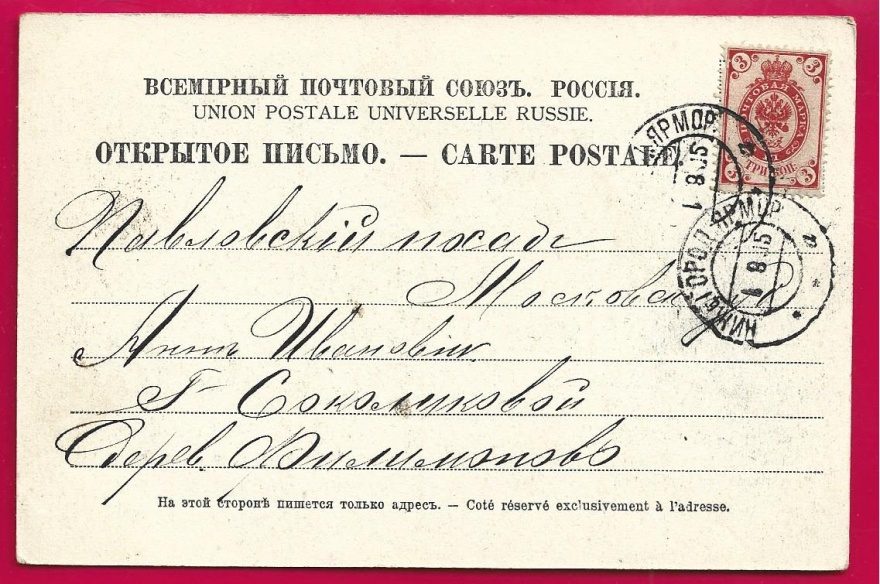 ВСЕМІРНЫЙ ПОЧТОВЫЙ СОЮЗЪ. РОССІЯ.
UNION POSTALE UNIVERSELLE RUSSIE.
ОТКРЫТОЕ ПИСЬМО. — CARTE POSTALE
3 3
ПОЧТОВАЯ МАРКА
ТРИ КОП.
3 3
ЯРМОР.
1 8 05
НИЖ. ГОРОД ЯРМОР.
1 8 05
Павловскій посадъ
Московск
Аннѣ Ивановнѣ
Г- Соколиковой
Дерев. Филимоново
На этой сторонѣ пишется только адресъ. — Coté réservé exclusivement à l'adresse.